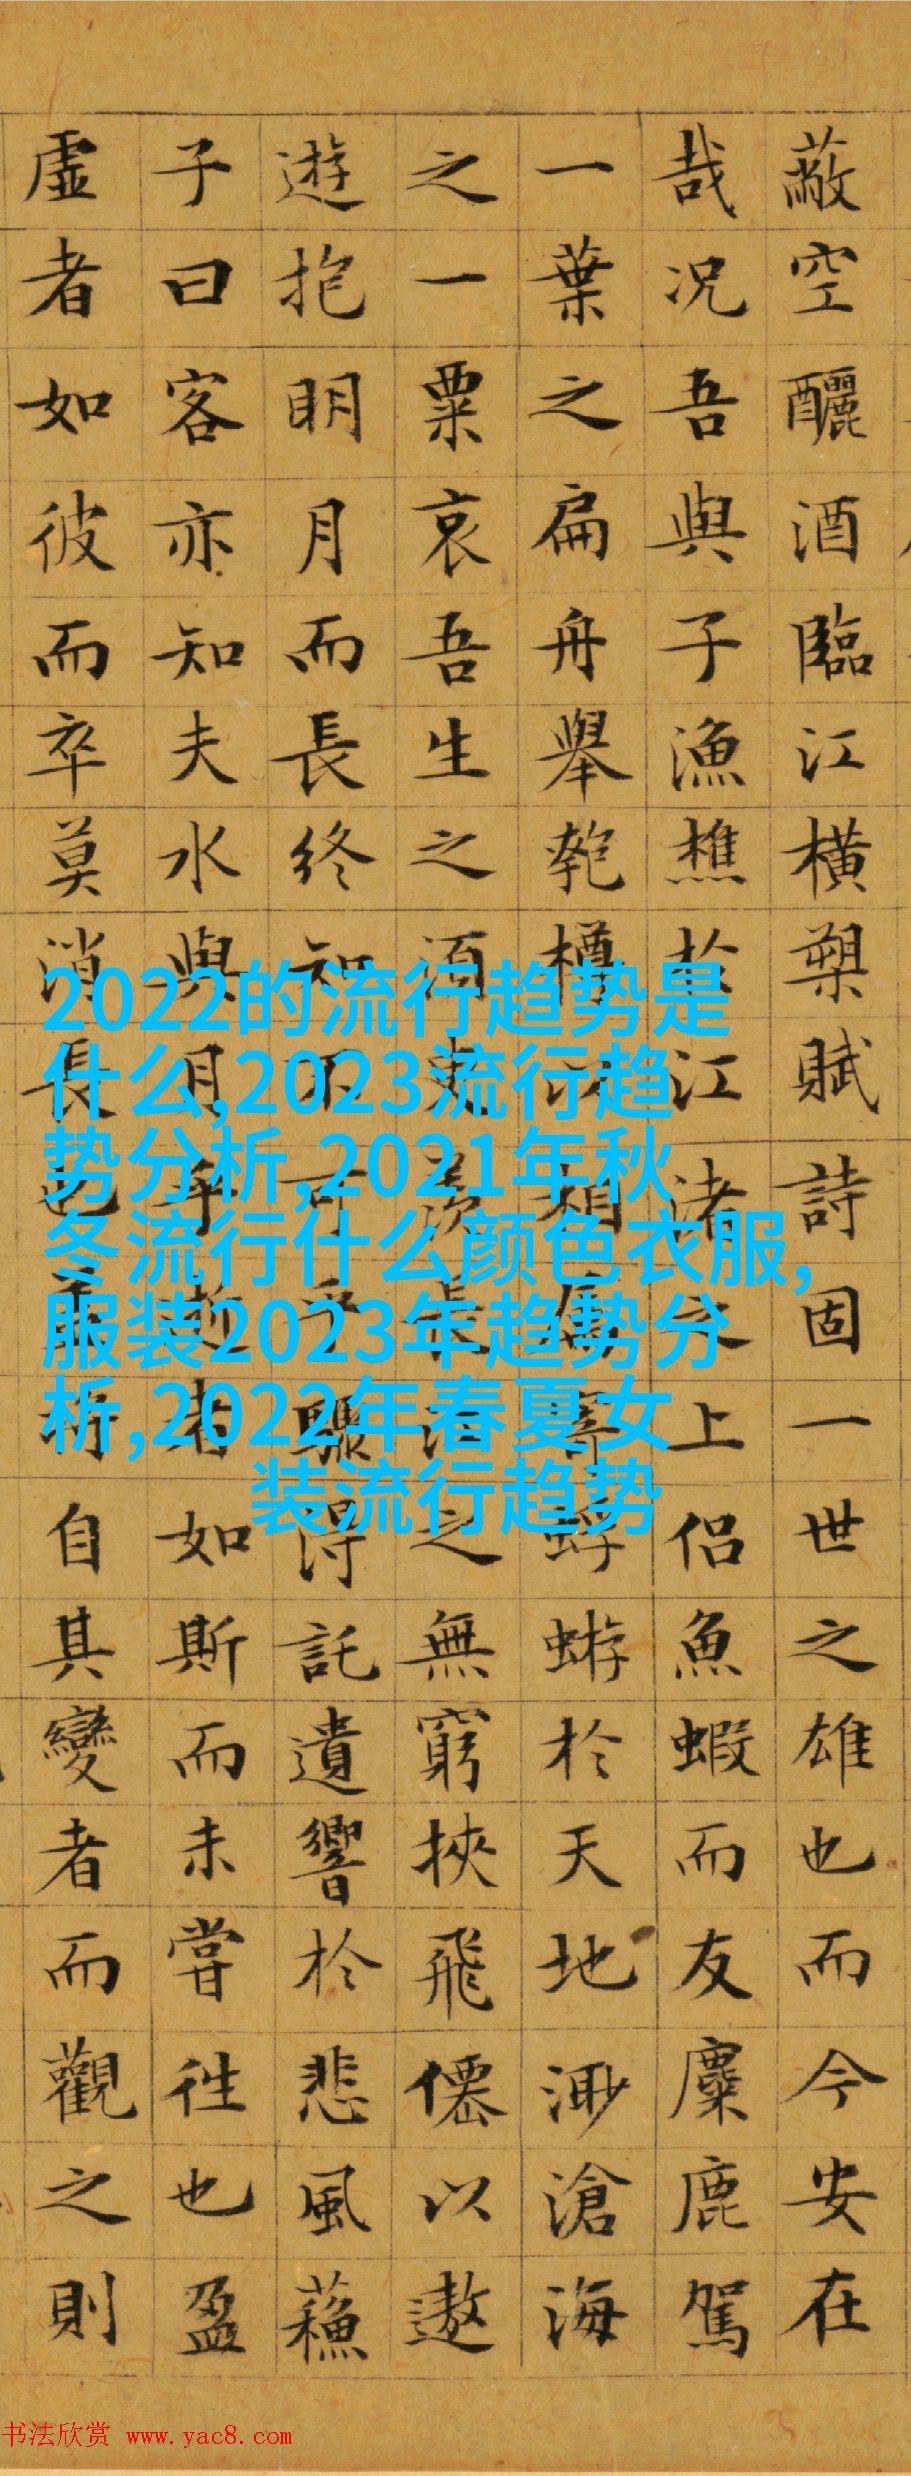 蔽空釃酒臨江橫槊賦詩固一世之雄也而今安在
哉况吾與子漁樵於江渚之上侣魚蝦而友麋鹿駕
一葉之扁舟舉匏樽以相屬寄蜉蝣於天地渺滄海
之一粟哀吾生之湏臾羨長江之無窮挾飛僊以遨
遊抱明月而長終知不可乎驟得託遺響於悲風蘇
子曰客亦知夫水與月乎逝者如斯而未嘗往也盈
虛者如彼而卒莫消長也蓋將自其變者而觀之則
2022的流行趋势是
什么,2023流行趋
势分析,2021年秋
冬流行什么颜色衣服,
服装2023年趋势分
析,2022年春夏女
装流行趋势
书法欣赏 www.yac8.com